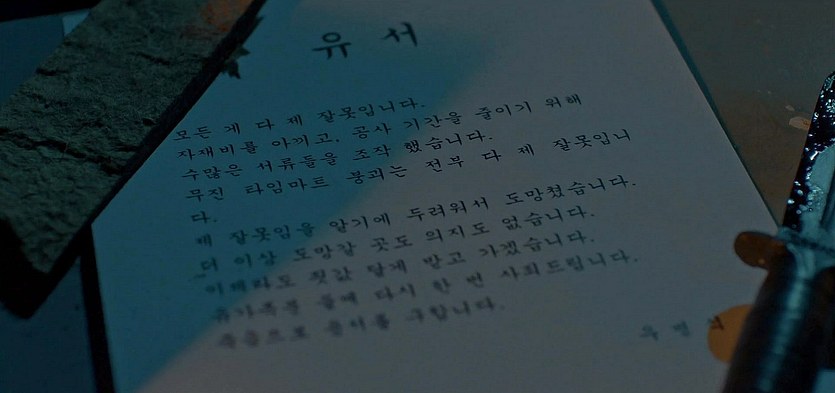 유 서
모든 게 다 제 잘못입니다.
자재비를 아끼고, 공사 기간을 줄이기 위해
수많은 서류들을 조작 했습니다.
무진 타임마트 붕괴는 전부 다 제 잘못입니
다.
제 잘못임을 알기에 두려워서 도망쳤습니다.
더 이상 도망갈 곳도 의지도 없습니다.
이제라도 죗값 달게 받고 가겠습니다.
유가족분 들께 다시 한 번 사죄드립니다.
죽음으로 용서를 구합니다.
우